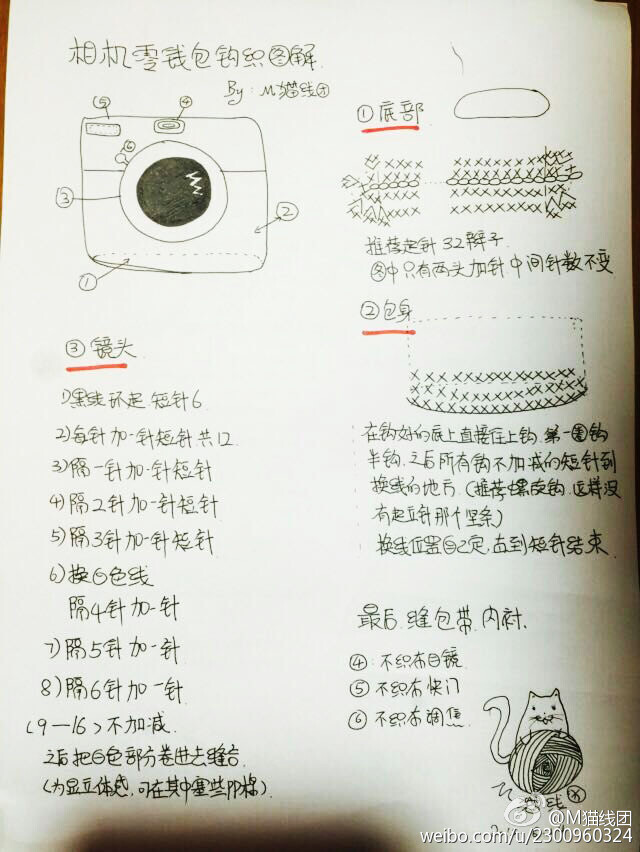 相机零钱包钩织图解
By：M猫线团
⑤
④
⑥
③
②
①
① 底部
推荐起针 32辫子
图中只有两头加针 中间针数不变
② 包身
在钩好的底上直接往上钩，第一圈钩
半钩，之后所有钩不加减的短针到
换线的地方。（推荐螺旋钩，这样没
有起立针那个竖条）
换线位置自己定，直到短针结束
③ 镜头
1）黑线环起 短针6
2）每针加一针短针共12
3）隔一针加一针短针
4）隔2针加一针短针
5）隔3针加一针短针
6）换白色线
隔4针加一针
7）隔5针加一针
8）隔6针加一针
（9—16）不加减.
之后把白色部分卷进去缝合
（为显立体感，可在其中塞些PP棉）
最后.缝包带.内衬.
④：不织布目镜
⑤ 不织布快门
⑥ 不织布调焦
@M猫线团
weibo.com/u/2300960324